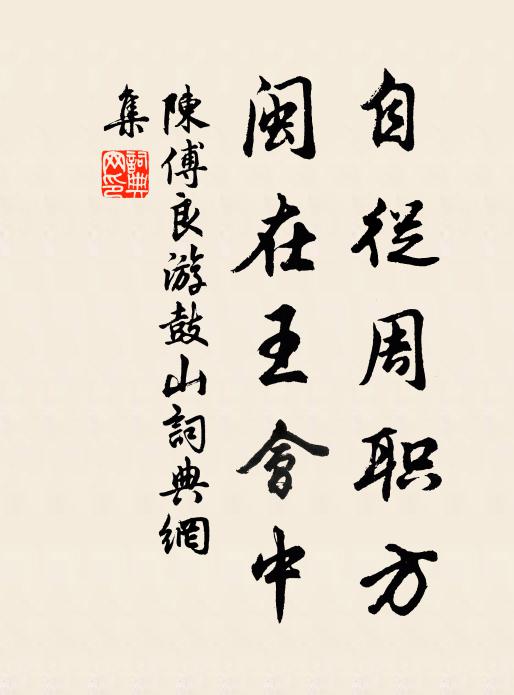 自従周职方
闽在王會中
陳傅良游鼓山詞典網
集
詞典
网印